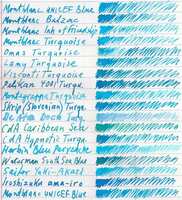 Montblanc UNICEF Blue
Montblanc Balzac
Montblanc Ink of Friendship
Montblanc Turquoise
Omas Turquoise
Lamy Turquoise
Visconti Turquoise
Pelikan Turqu.
Montegrappa Turquoise
Skrip (Slovenian) Turqu.
De Atra Doch Turq.
CdA Caribbean Sea
CdA Hypnotic Turqu.
Herbin Bleu Pervenche
Waterman South Sea Blue
Sailor Yuki-Akari
Iroshizuku ama-iro